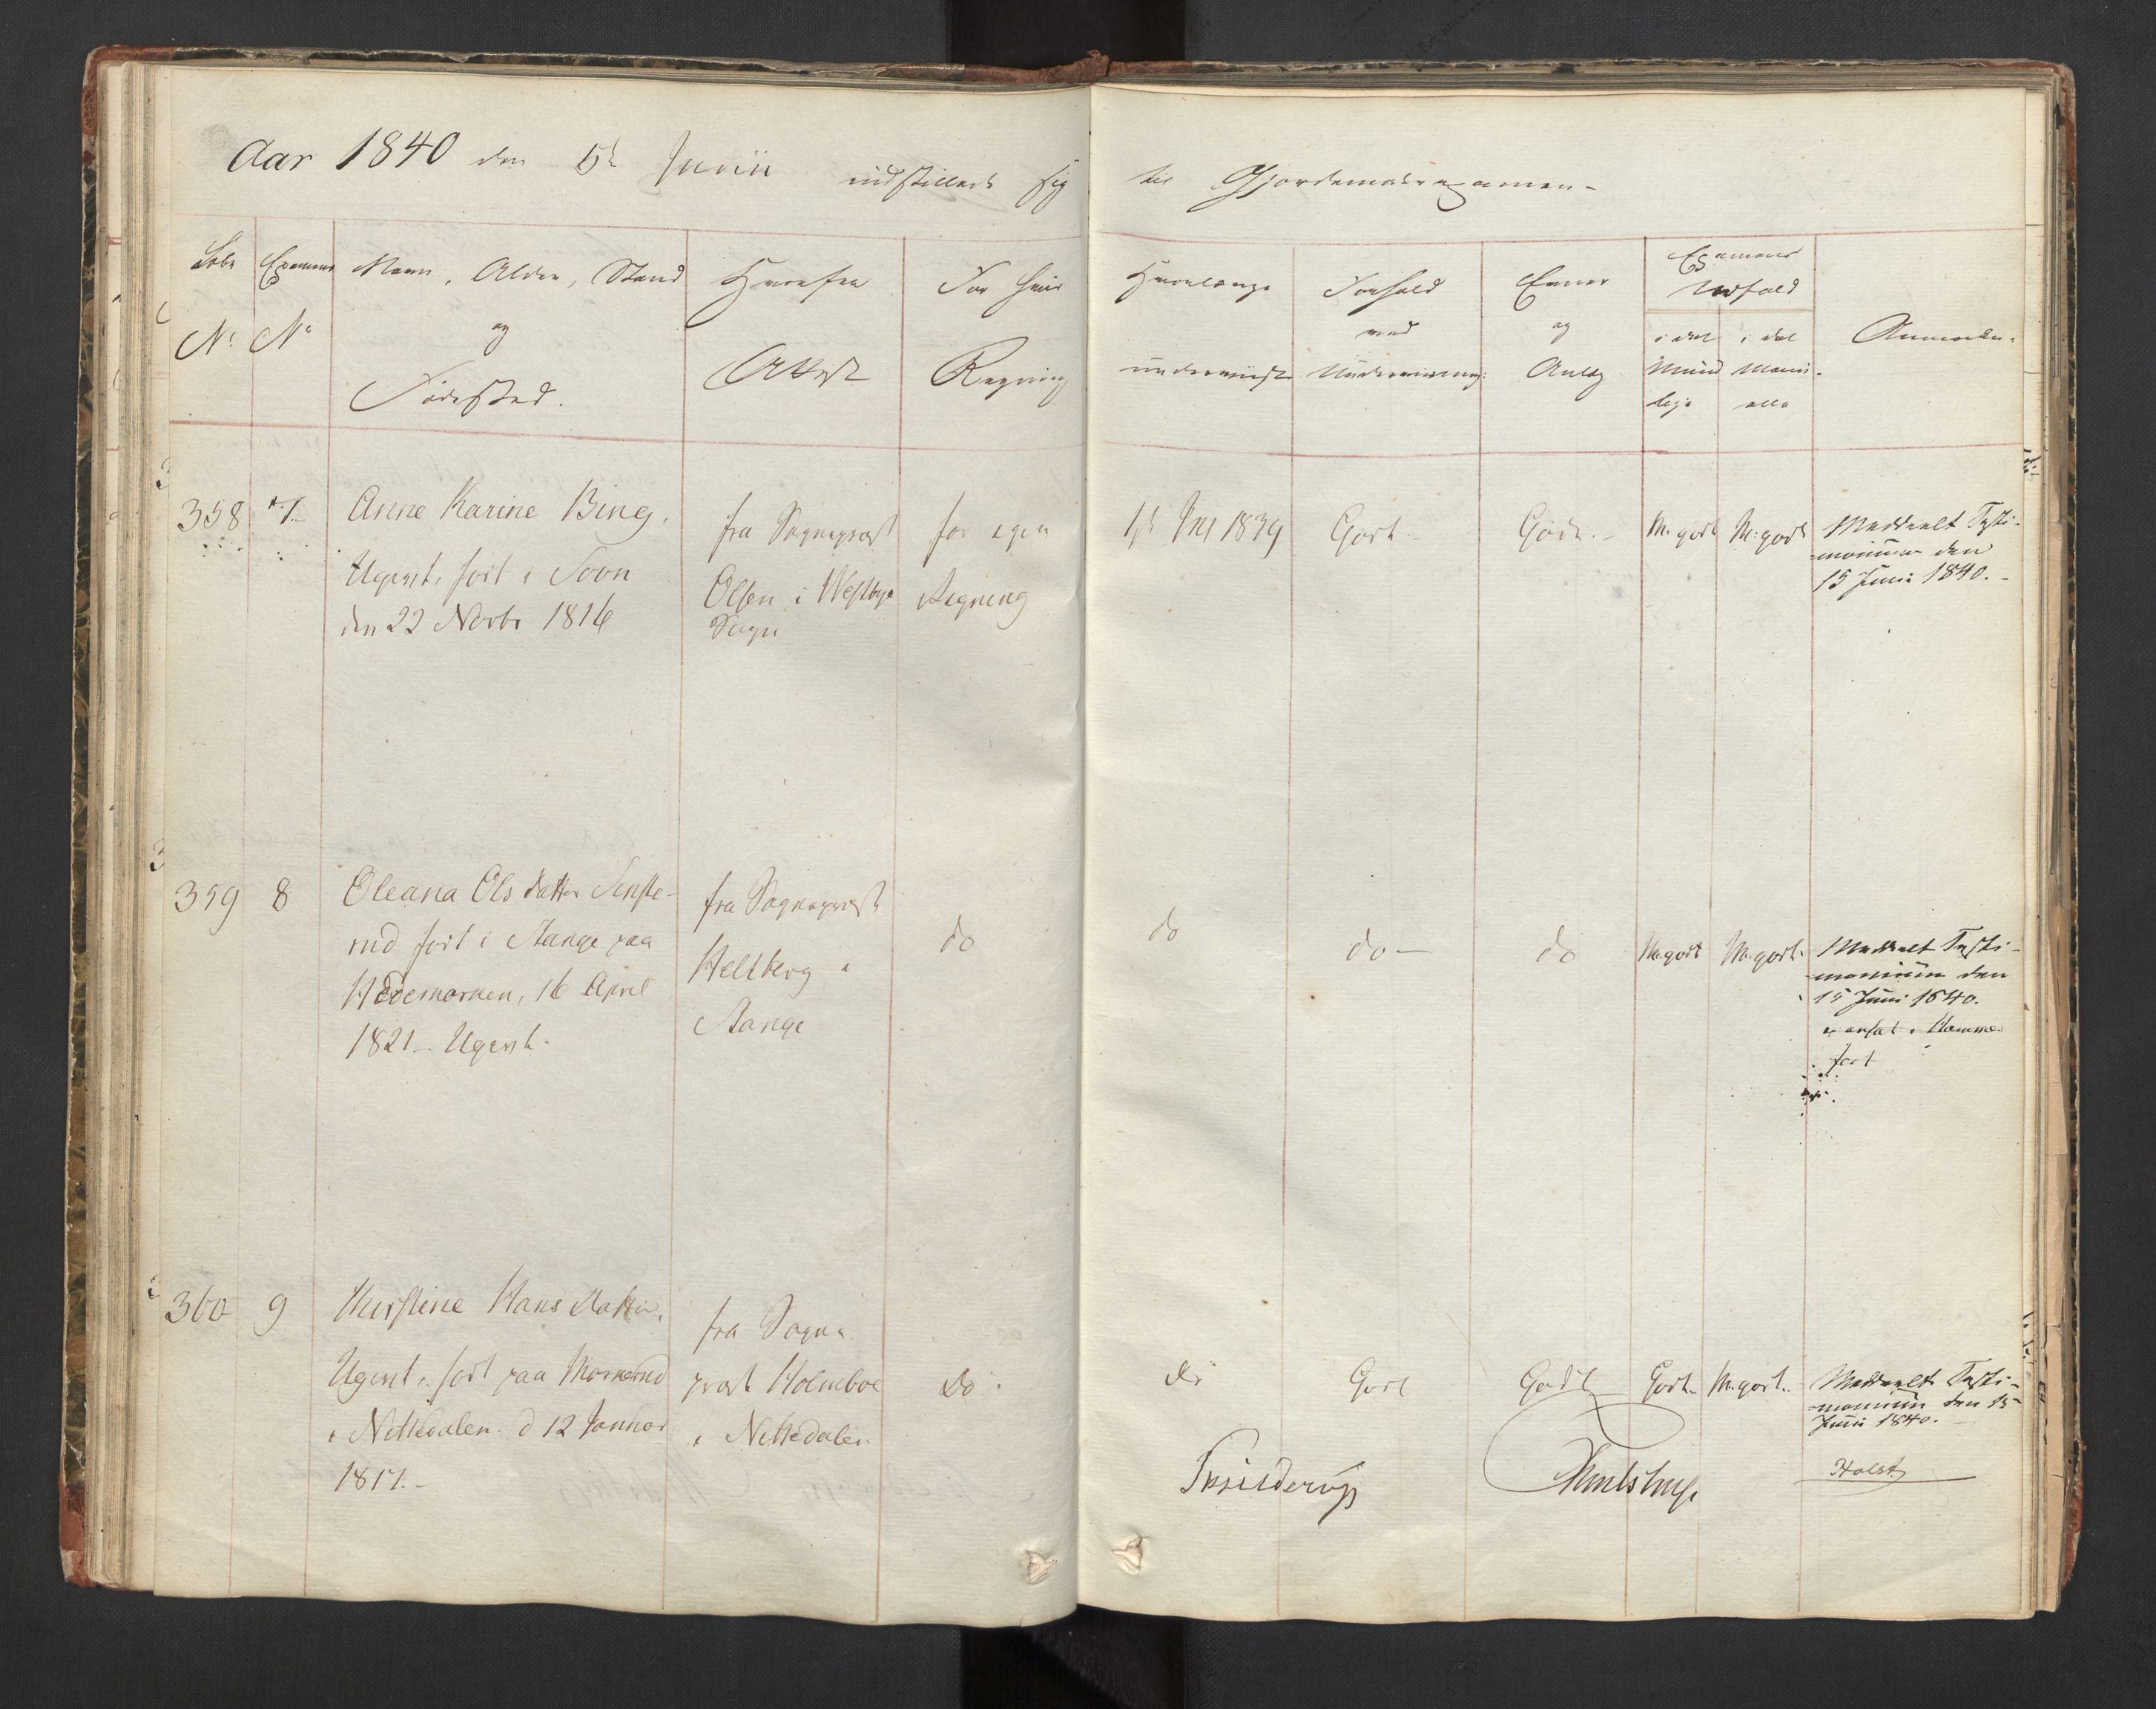 Aar 1840 den 5t Junii indstillede sig til Gjordemoderexamen-
Løbe
No
Examens
No
Navn, Alder, Stand
og
Fødested.
Hvorfra
Attest
For hvis
Regning
Hvorlænge
underviist
Forhold
ved
Underviisning:
Evner
og
Anlæg
Examens
Udfald
i det
Mund
lige
i det
Manu-
elle
Anmærkn.
358
7.
Anne Karine Bing,
Ugivt, født i Soon
den 22 Novbr 1816
fra Sognepræst
Olsen i Westbye
Sogn
for egen
Regning
1ste Juli 1839
Godt-
Gode.-
M. godt
M: godt
Meddeelt Testi-
monium den
15 Juni 1840.-
359
8
Oleana Olsdatter Finste-
rud født i Stange paa
Hedemarken, 16 April
1821-. Ugivt.
fra Sognepræst
Heltberg i
Stange
do
do
do-
do
M. godt
M. godt.
Meddeelt Testi-
monium den
15 Juni 1840.
er ansat i Hammer
fest
360
9
Kirstine Hansdatter,
Ugivt, født paa
i Nittedalen. d 12 Januar
1817.-
fra Sogne
præst Holmboe
i Nittedalen
do.
do
Godt
Godt
Godt.
M. godt.
Meddeelt Testi-
monium den 15
Juni 1840.-
Thulstrup
Holst